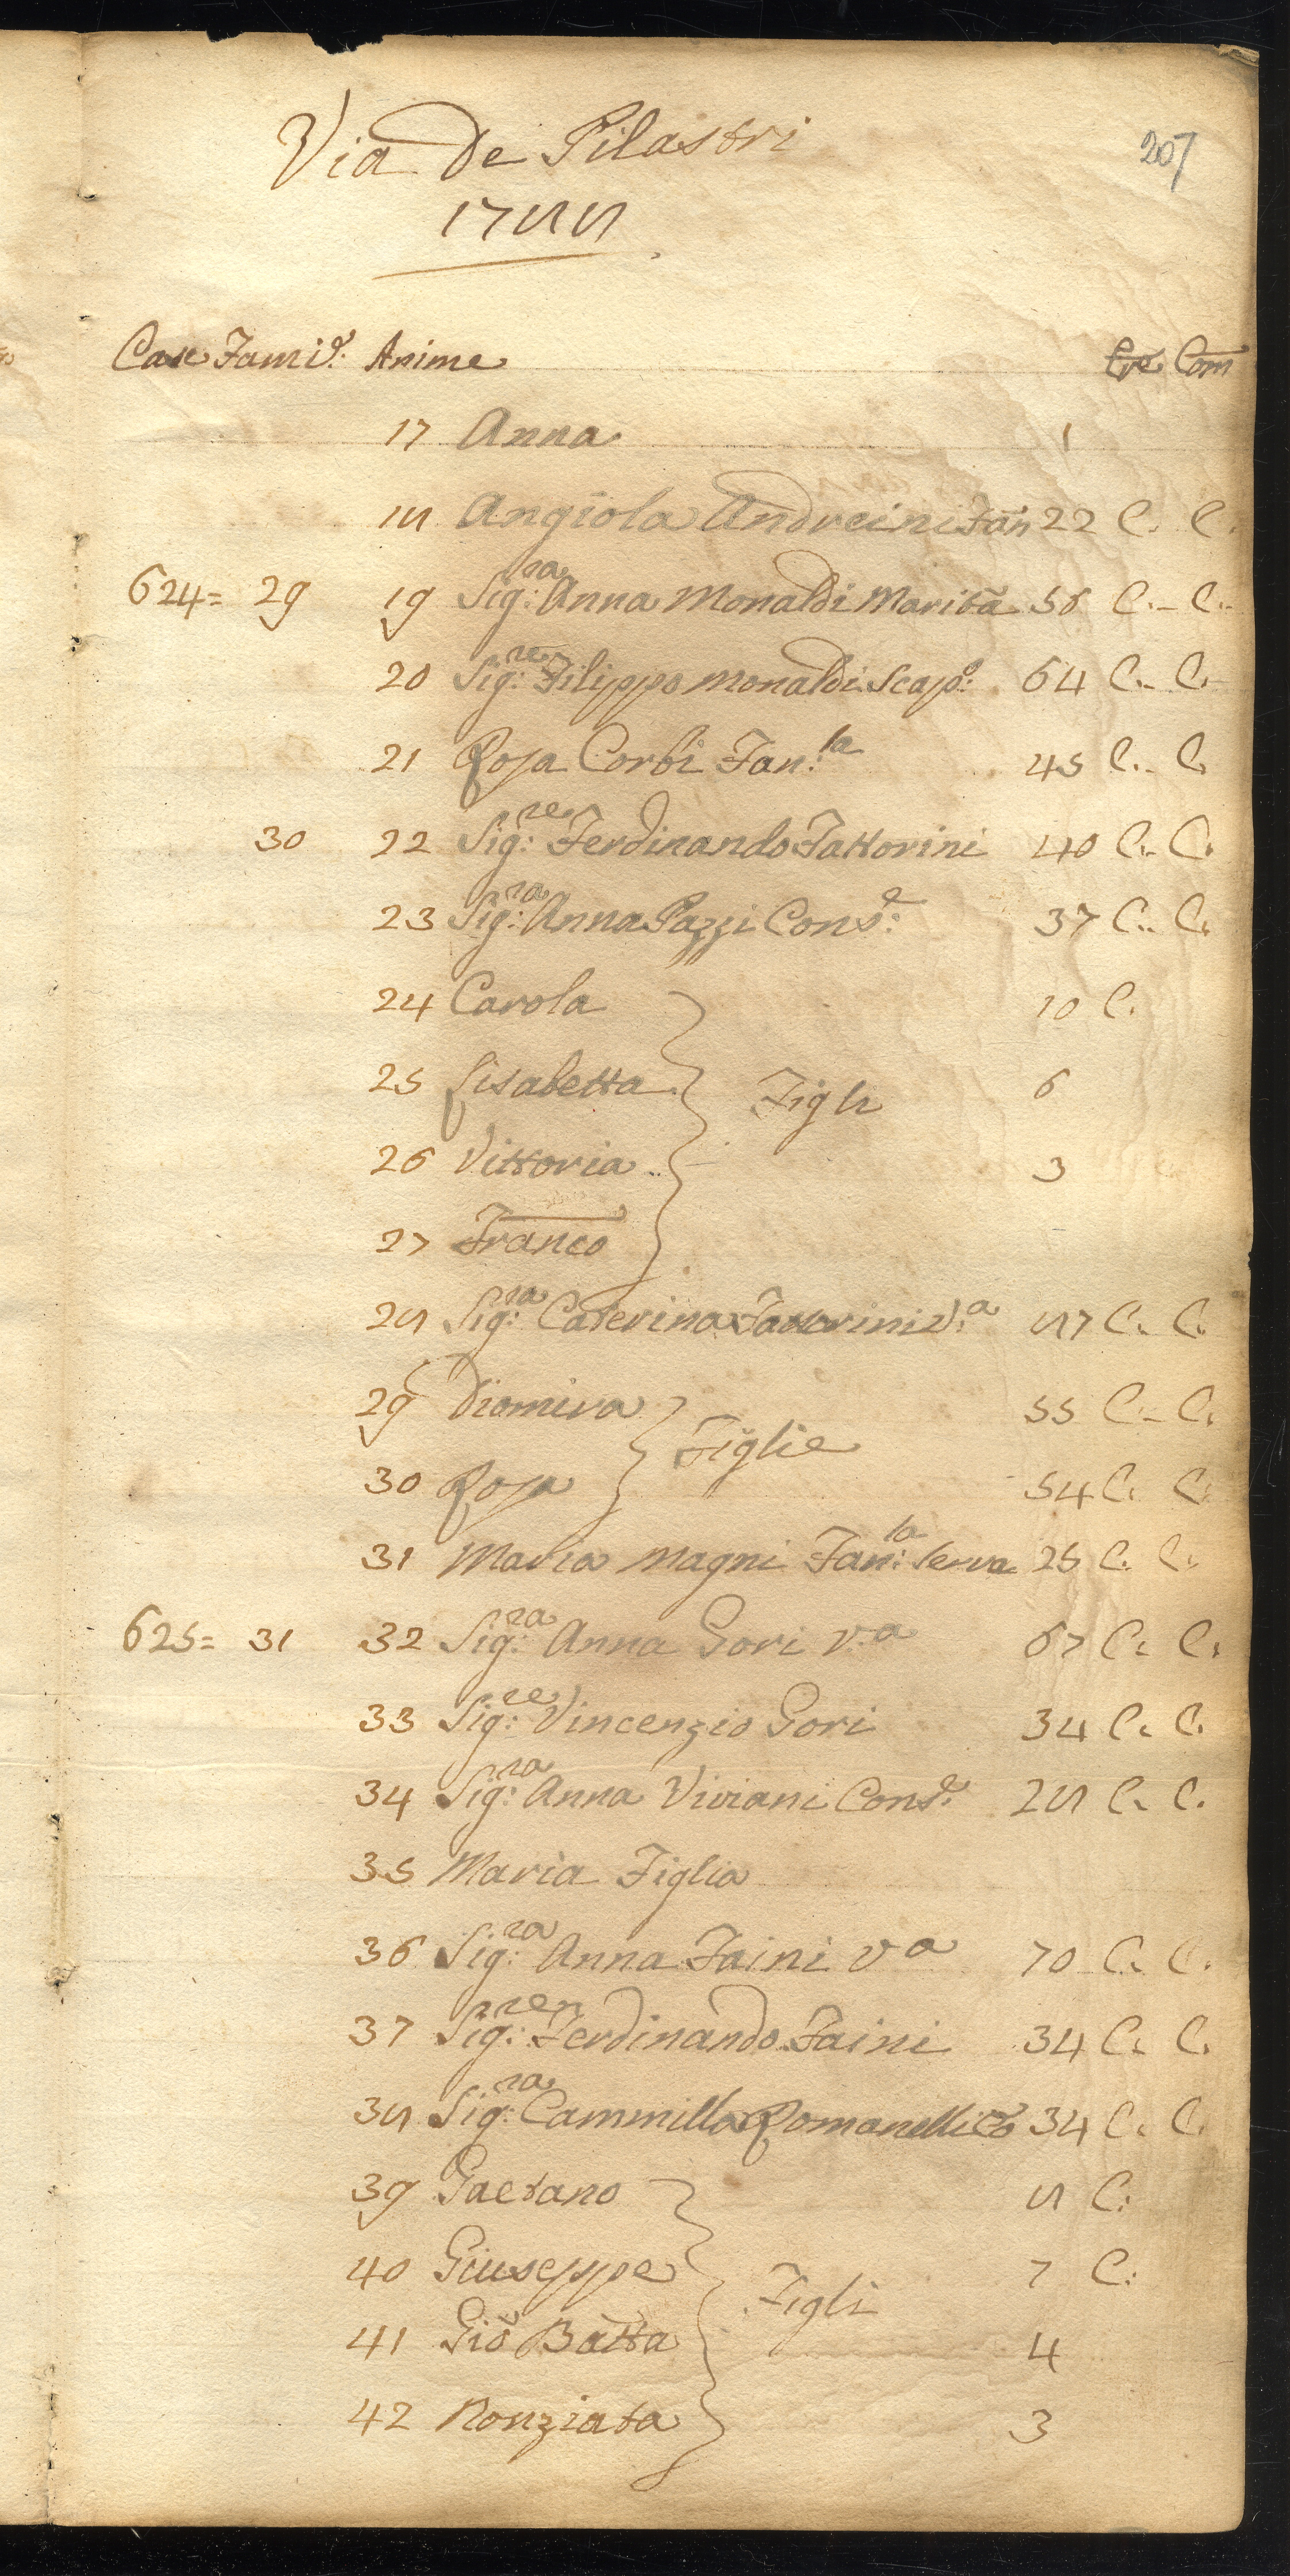 207
Via de Pilastri
1788
Case Famie: Anime Cre Com
17 Anna 1
18 Angiola Andreini Fan 22 C. C.
624= 29 19 Sig:ra Anna Monaldi Marita 56 C. C.
20 Sig:re Filippo Monaldi Scapo: 64 C. C.
21 Rosa Corbi Fan:la 45 C. C.
30 22 Sig:re Ferdinando Fattorini 40 C. C.
23 Sig:ra Anna Pazzi Conse: 37 C. C.
24 Carola 10 C.
25 Lisabetta Figli 6
26 Vittoria 3
27 Franco
28 Sig:ra Caterina Fattorini V:a 87 C. C.
29 Diomira 55 C. C.
Figlie
30 Rosa 54 C. C.
31 Maria Magni Fan:la Serva 25 C. C.
625= 31 32 Sig:ra Anna Gori v:a 67 C. C.
33 Sig:re Vincenzio Gori 34 C. C.
34 Sig:ra Anna Viviani Conse: 28 C. C.
35 Maria Figlia
36 Sig:ra Anna Faini va 70 C. C.
37 Sig:re Ferdinando Faini 34 C. C.
38 Sig:ra Cammilla Romanelli Co 34 C. C.
39 Gaetano 8 C:
40 Giuseppe 7 C:
Figli
41 Gio Batta 4
42 Nonziata 3